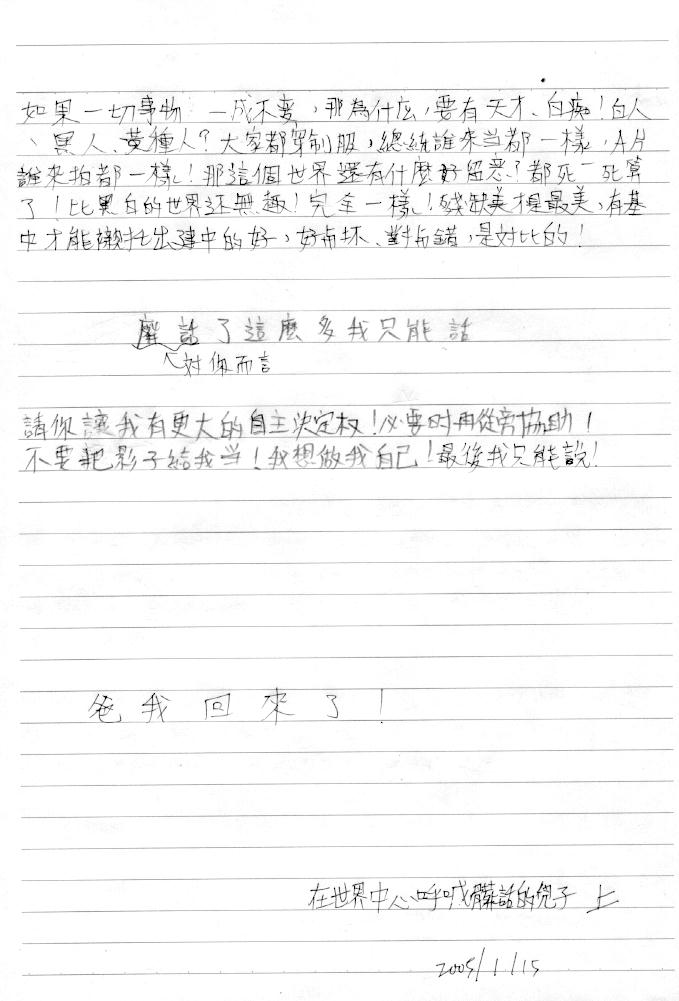 如果一切事物 一成不变,那為什么,要有天才、白痴!白人
、黑人、黃種人?大家都穿制服,總統誰來当都一樣,A片
誰來拍都一樣!那這個世界還有什麼好留恋?都死一死算
了!比黑白的世界还無趣!完全一樣!殘缺美才是最美,有基
中才能襯托出建中的好,好与坏、對与錯,是对比的!
廢話了這麼多我只能話
对你而言
請你讓我有更大的自主決定权!必要时再從旁協助!
不要把影子給我当!我想做我自己!最後我只能說!
爸我回來了!
在世界中心呼喊髒話的兒子 上
2005/1/15